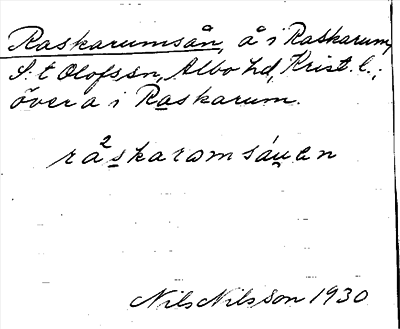 Raskarumsån, å i Raskarum,
S:t Olofs sn, Albo hd, Krist. l.;
över a i Raskarum.
ra²skaromsáu̯ən
Nils Nilsson 1930